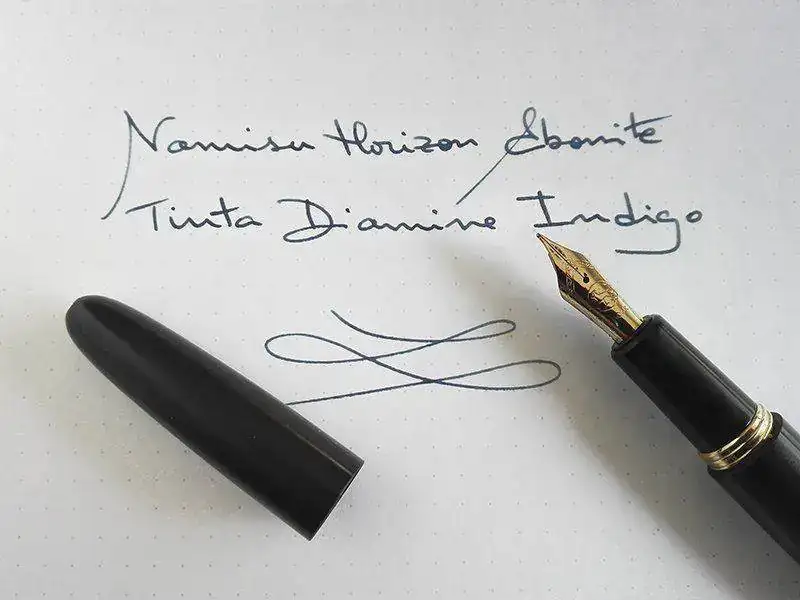 Namisu Horizon Ebonite
Tinta Diamine Indigo